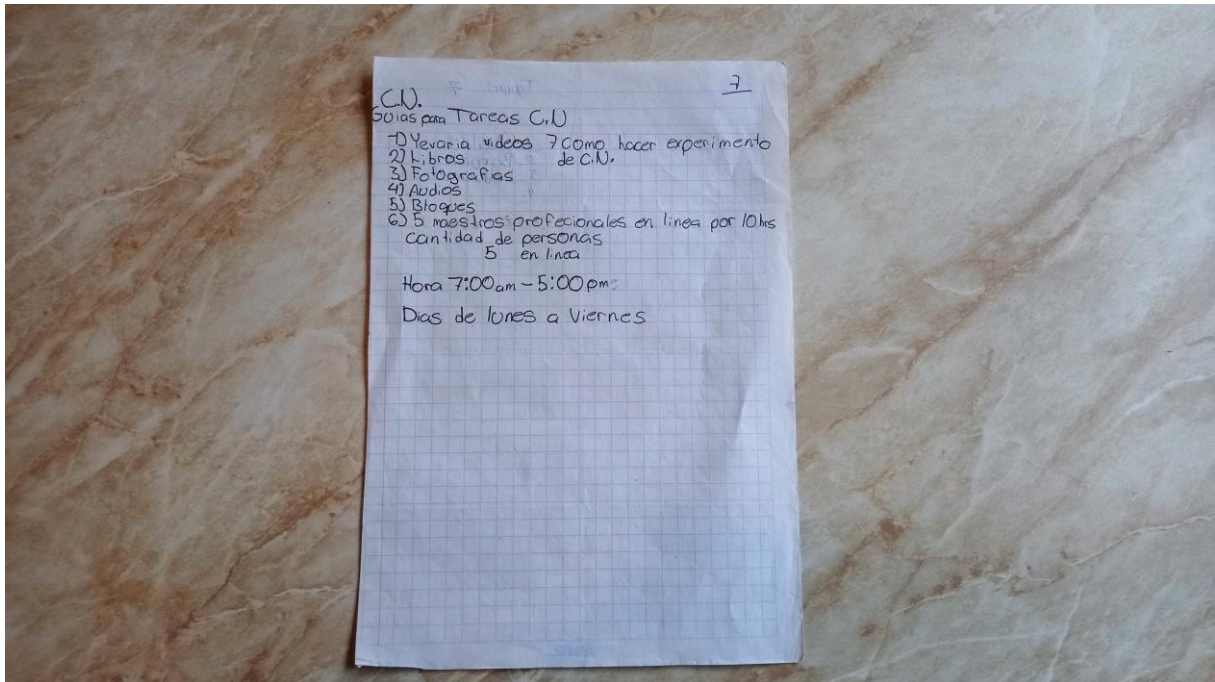 7
C.N.
Guias para Tareas C.N
1) Yevaria videos 7 Como hacer experimento
de C.N.
2) Libros
3) Fotografias
4) Audios
5) Bloques
6) 5 maestros profecionales en linea por 10 hrs
cantidad de personas
5 en linea
Hora 7:00 am - 5:00 pm
Dias de lunes a Viernes